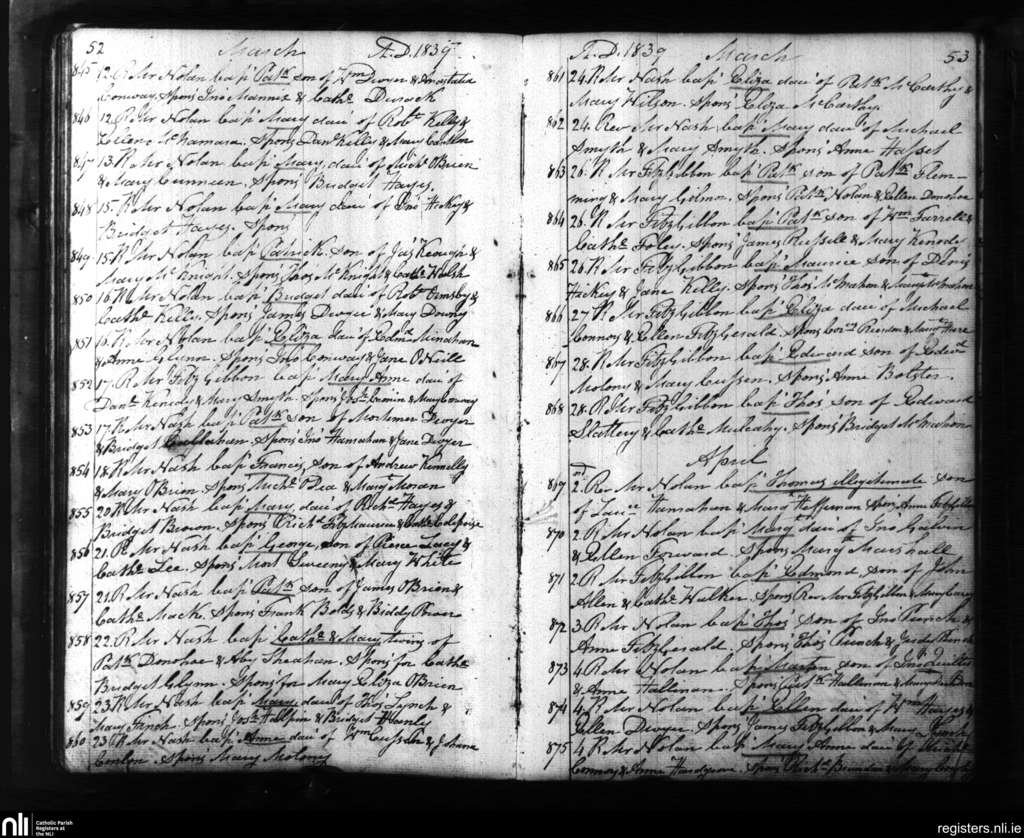 52 March A.D. 1839
845 12. R Mr Nolan bap Patk son of Wm Dwyer & Anastatia
Conway. Spons Jno Mannix & Cathe Durack
846 12. R Mr Nolan bap Mary dau of Robt Kelly &
Ellena McNamara. Spons Danl Kelly & Mary Conlon
847 13. R Mr Nolan bap Mary, dau of Michl O'Brien
& Mary Cunneen. Spons Bridget Hayes.
848 15. R Mr Nolan bap Mary dau of Jno Hickey &
Bridget Hayes. Spons
849 15 R Mr Nolan bap Patrick son of Jas Keough &
Mary McKnight. Spons Thos McKnight & Cathe Walsh
850 16. R Mr Nolan bap Bridget dau of Robt Ormsby &
Cathe Kelly. Spons James Dwyer & Mary Downy
851 16. R Mr Nolan bap Eliza dau of Edmd Minahan
& Anne Glynn. Spons Jno Conway & Jane O'Neill
852 17. R Mr FitzGibbon bap Mary Anne dau of
Danl Kennedy & Mary Smyth. Spons Josh Cronin & Mary Conway
853 17. R Mr Nash bap Patk son of Mortimer Dwyer
& Bridget Spons Jno Hanrahan & Jane Dwyer
854 18. R Mr Nash bap Francis, son of Andrew Kennelly
& Mary O'Brien. Spons Michl O'Dea & Margt Moran
855 20. R Mr Nash bap Mary, dau of Richd Hayes &
Bridget Brown. Spons Richd FitzMaurice & Cathe
856 21. R Mr Nash bap George, son of Pierce Lacy &
Cathe Lee. Spons Mort Sweeny & Mary White
857 21. R Mr Nash bap Patk son of James O'Brien &
Cathe Mack. Spons Frank Bolds & Biddy
858 22. R Mr Nash bap Cathe & Mary twins of
Patk Donohoe & Aby Sheahan. Spons for Cathe
Bridget Glynn. Spons for Mary Eliza O'Brien
859 23. R Mr Nash bap Mary dau of Thos Lynch &
Mary French. Spons Josh Halpin & Bridget Hanly
860 23. R Mr Nash bap Anne dau of Wm Cussen & Johana
Conlon. Spons Mary Molony
A.D. 1839 March 53
861 24. R Mr Nash bap Eliza dau of Patk McCarthy &
Mary Wilson. Spons Eliza McCarthy.
862 24. Rev Mr Nash, bap Mary dau of Michael
Smyth & Mary Smyth. Spons Anne Hasset
863 26. R Mr FitzGibbon bap Patk son of Patk Flem-
ming & Mary Gilmor. Spons Patk Nolan & Ellen Donohoe
864 26. R Mr FitzGibbon bap Patk son of Wm Farrell &
Cathe Foley. Spons James Russell & Mary
865 26. R Mr FitzGibbon bap Maurice son of Denis
Hickey & Jane Kelly. Spons Thos McMahon & McMahon
866 27. R Mr FitzGibbon bap Eliza dau of Michael
Connors & Ellen FitzGerald. Spons Riordan & Margt Hare
867 28. R Mr FitzGibbon bap Edward son of Edwd
Molony & Mary Cussen. Spons Anne Bolster.
868 28. R Mr FitzGibbon bap Thos son of Edward
Slattery & Cathe Mulcahy. Spons Bridget McMahon
April
869 2nd Rev Mr Nolan bap Thomas illegitimate son
of Laure Hanrahan & Margt Heffernan Spons Anne
870 2. R Mr Nolan bap Mary dau of Jno
& Ellen Forward. Spons Mary Marshall
871 2 R Mr FitzGibbon bap Edmond, son of John
Allen & Cathe Walker. Spons Rev Mr FitzGibbon & Mary
872 3 R Mr Nolan bap Thos son of Jno &
Anne FitzGerald. Spons Thos &
873 4. R Mr Nolan bap Martin son of Jno Quilter
& Anne Halloran. Spons Patk Halloran &
874 4. R Mr Nolan bap Ellen dau of Wm Hayes &
Ellen Dwyer. Spons James FitzGibbon & Mary
875 4 R Mr Nolan bap Mary Anne dau of Michl
Connors & Anne Hardgrove. Spons Richd &
nli Catholic Parish
Registers at
the NLI
registers.nli.ie